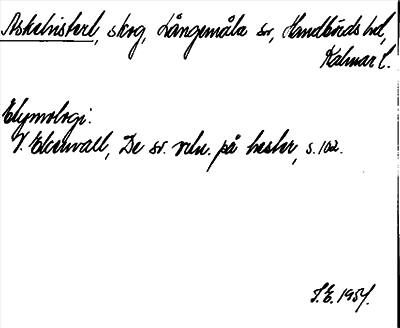 Askebristerl, skog, Långemåla sn, Handbörds hd,
Kalmar l.
Etymologi:
V. Ekenvall, De sv. seln. på hester, s. 102.
S.E. 1954.